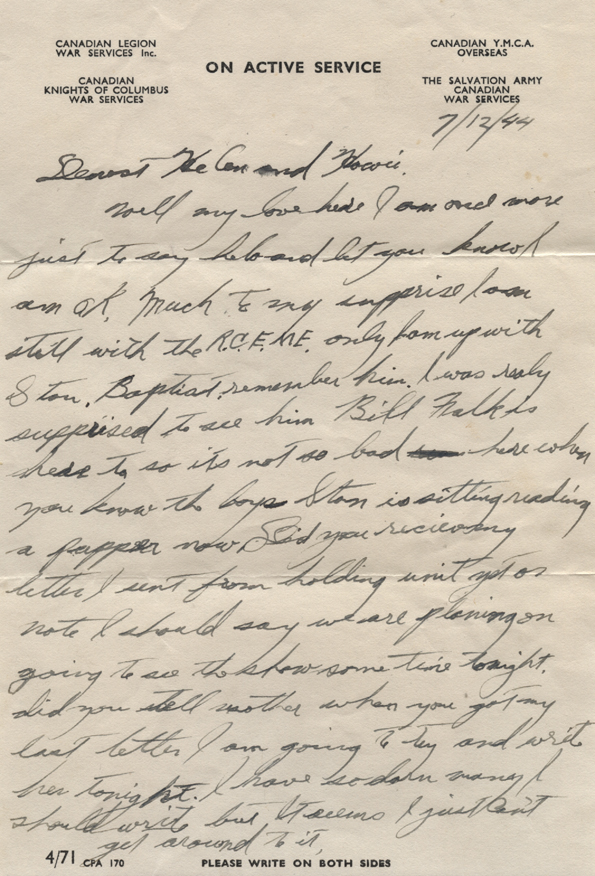 CANADIAN LEGION
WAR SERVICES Inc.
CANADIAN
KNIGHTS OF COLUMBUS
WAR SERVICES
ON ACTIVE SERVICE
CANADIAN Y.M.C.A.
OVERSEAS
THE SALVATION ARMY
CANADIAN
WAR SERVICES
7/12/44
Dearest Helen and Howie.
Well my love here I am once more
just to say helo and let you know I
am ok. Much to my supprise I am
still with the R.C.E.M.E. only I am up with
Stan. Baptist, remember him. I was realy
suppriised to see him Bill Halk is
here to so its not so bad here when
you know the boys Stan is sitting reading
a papper now. Did you recieve my
letter I sent from holding unit yet or
note I should say we are planing on
going to see the show some time tonight.
did you tell mother when you got my
last letter I am going to try and write
her tonight. I have so darn many I
should write but it seems I just can't
get around to it,
4/71 CPA 170
PLEASE WRITE ON BOTH SIDES